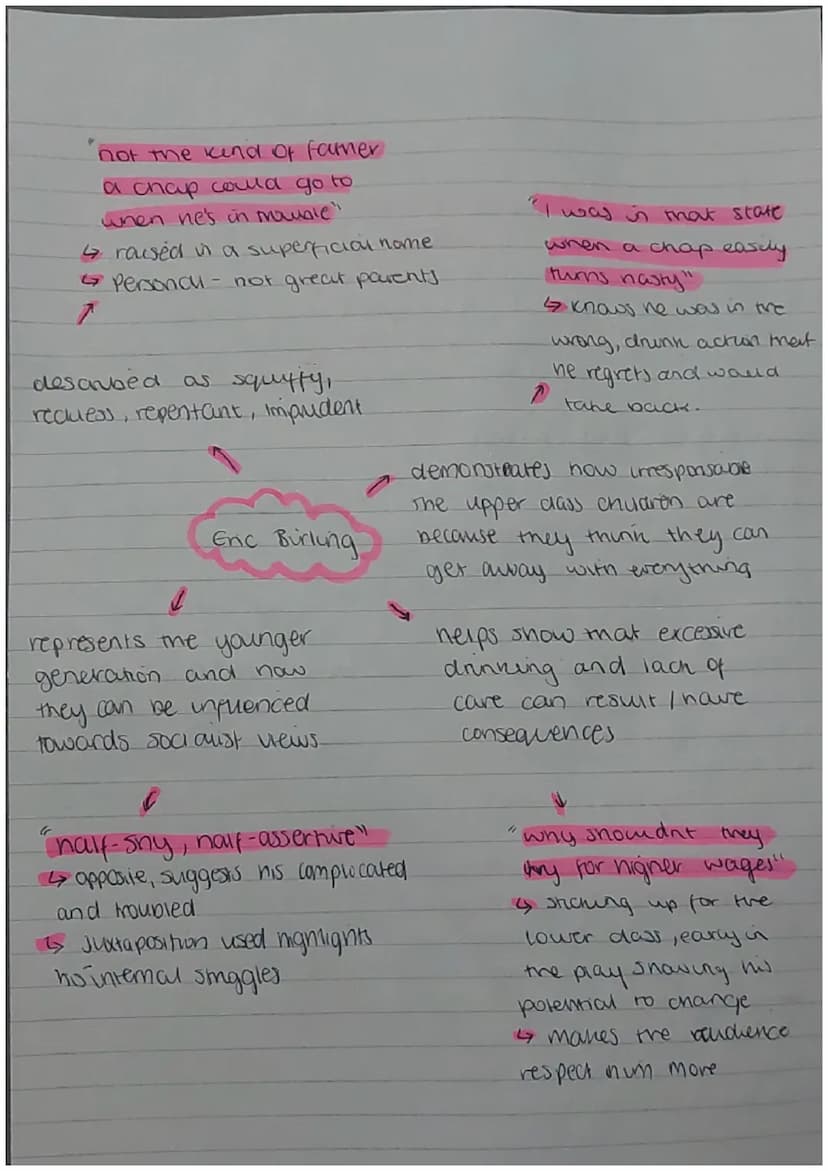 "not the kind of father
a chap could go to
when he's in trouble"
↳ raised in a superficial home
↳ personal - not great parents
"I was in that state
when a chap easily
turns nasty"
↳ knows he was in the
wrong, drunk action that
he regrets and would
take back.
described as squiffy,
reckless, repentant, impudent
Eric Birling
demonstrates how irresponsable
the upper class children are
because they think they can
get away with everything
represents the younger
generation and how
they can be influenced
towards socialist views
helps show that excessive
drinking and lack of
care can result / have
consequences
"half-shy, half-assertive"
↳ opposite, suggests his complicated
and troubled
↳ juxtaposition used highlights
his internal struggles
"why shouldnt they
try for higher wages"
↳ sticking up for the
lower class, early in
the play showing his
potential to change
↳ makes the audience
respect him more